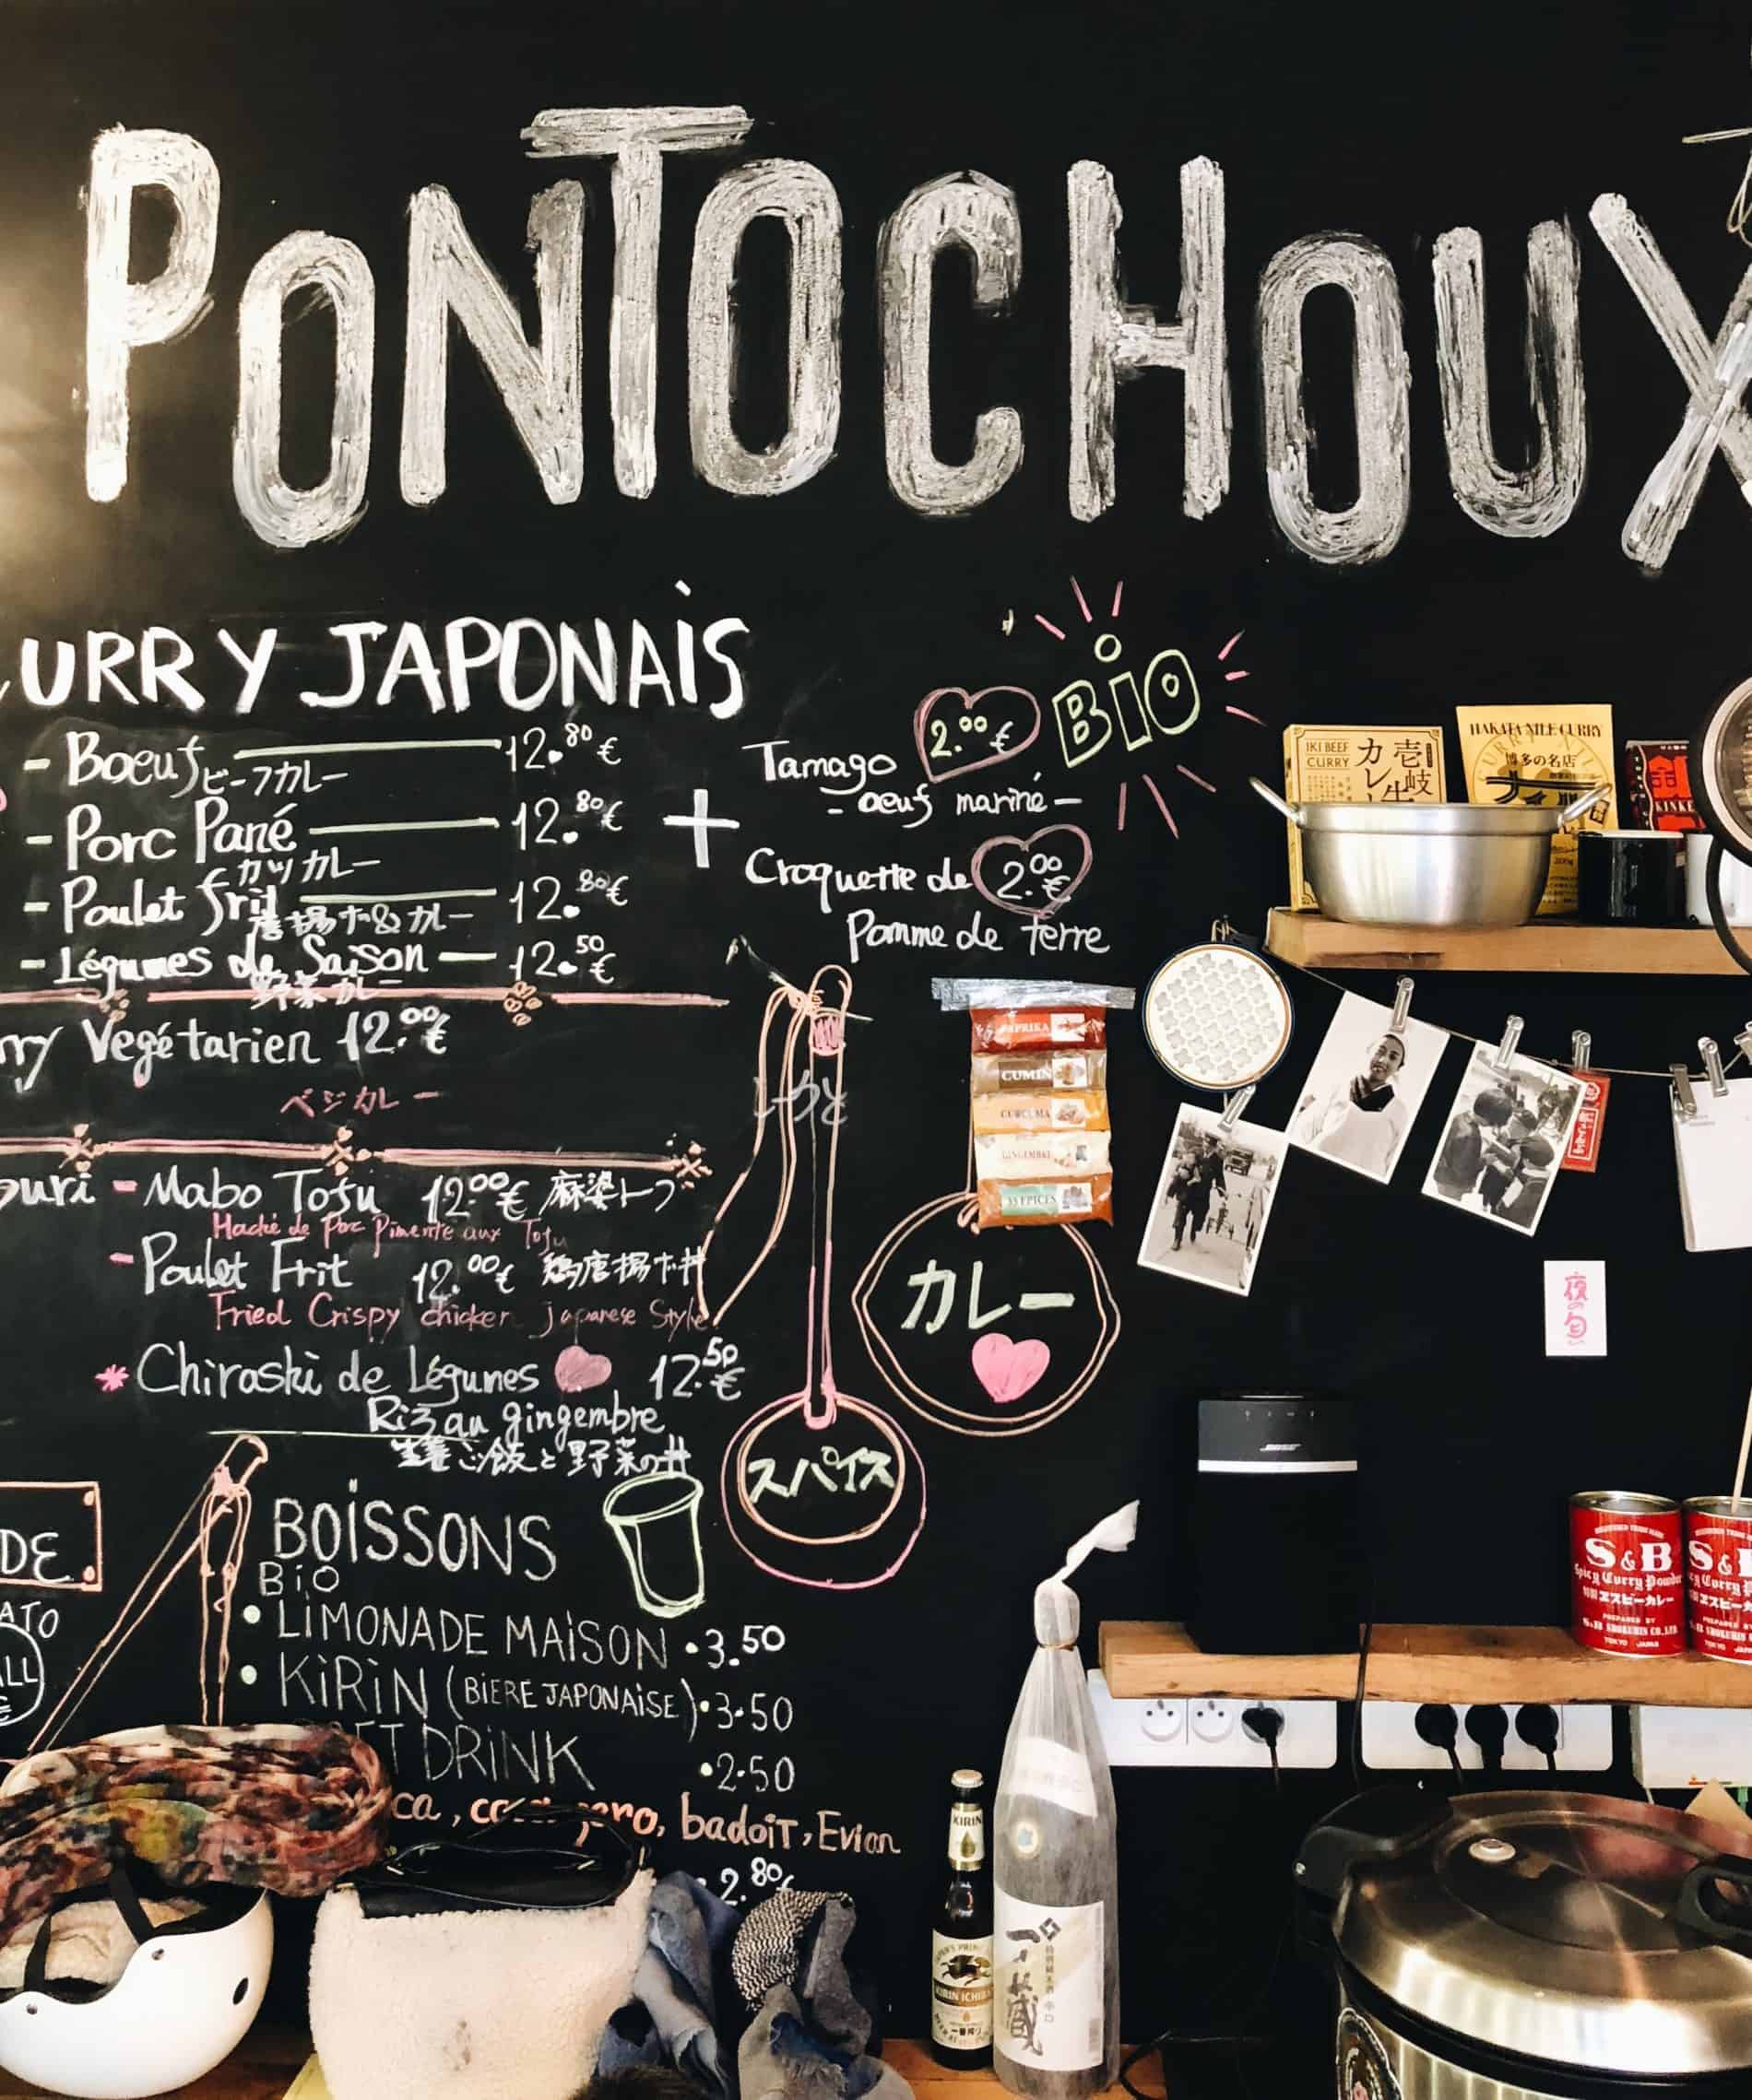 PONTOCHOUX
URRY JAPONAIS
- Boeuf 12.80 €
ビーフカレー
- Porc Pané 12.80 €
カツカレー
- Poulet frit 12.80 €
唐揚ナ&カレー
- Légumes de Saison 12.50 €
野菜カレー
+
BIO
Tamago 2.00 €
- oeuf mariné -
Croquette de 2.00 €
Pomme de terre
rry Vegétarien 12.00 €
ベジカレー
ouri - Mabo Tofu 12.00 € 麻婆トーフ
Haché de Porc Pimenté aux Tofu
- Poulet Frit 12.00 € 鶏唐揚ナ丼
Fried Crispy chicken Japanese Style
* Chiraski de Légumes 12.50 €
Riz au gingembre
生姜ご飯と野菜の丼
カレー
スパイス
DE
ATO
ALL
€
BOISSONS
BIO
• LIMONADE MAISON • 3.50
• KIRIN (BIERE JAPONAISE) • 3.50
FT DRINK • 2.50
ca, coca zero, badoit, Evian
2.80 €
IKI BEEF
CURRY
壱岐
カレー
HAKATA NILE CURRY
博多の名店
KINKE
PAPRIKA
CUMIN
CURCUMA
GINGEMBRE
35 EPICES
夜の匂い
BOSE
S&B
Spicy Curry Powder
特製ヱスビーカレー
PREPARED BY
S&B SHOKUHIN CO.,LTD.
TOKYO JAPAN
KIRIN
KIRIN ICHIBAN
一番搾り
一ノ蔵
特別純米酒 辛口